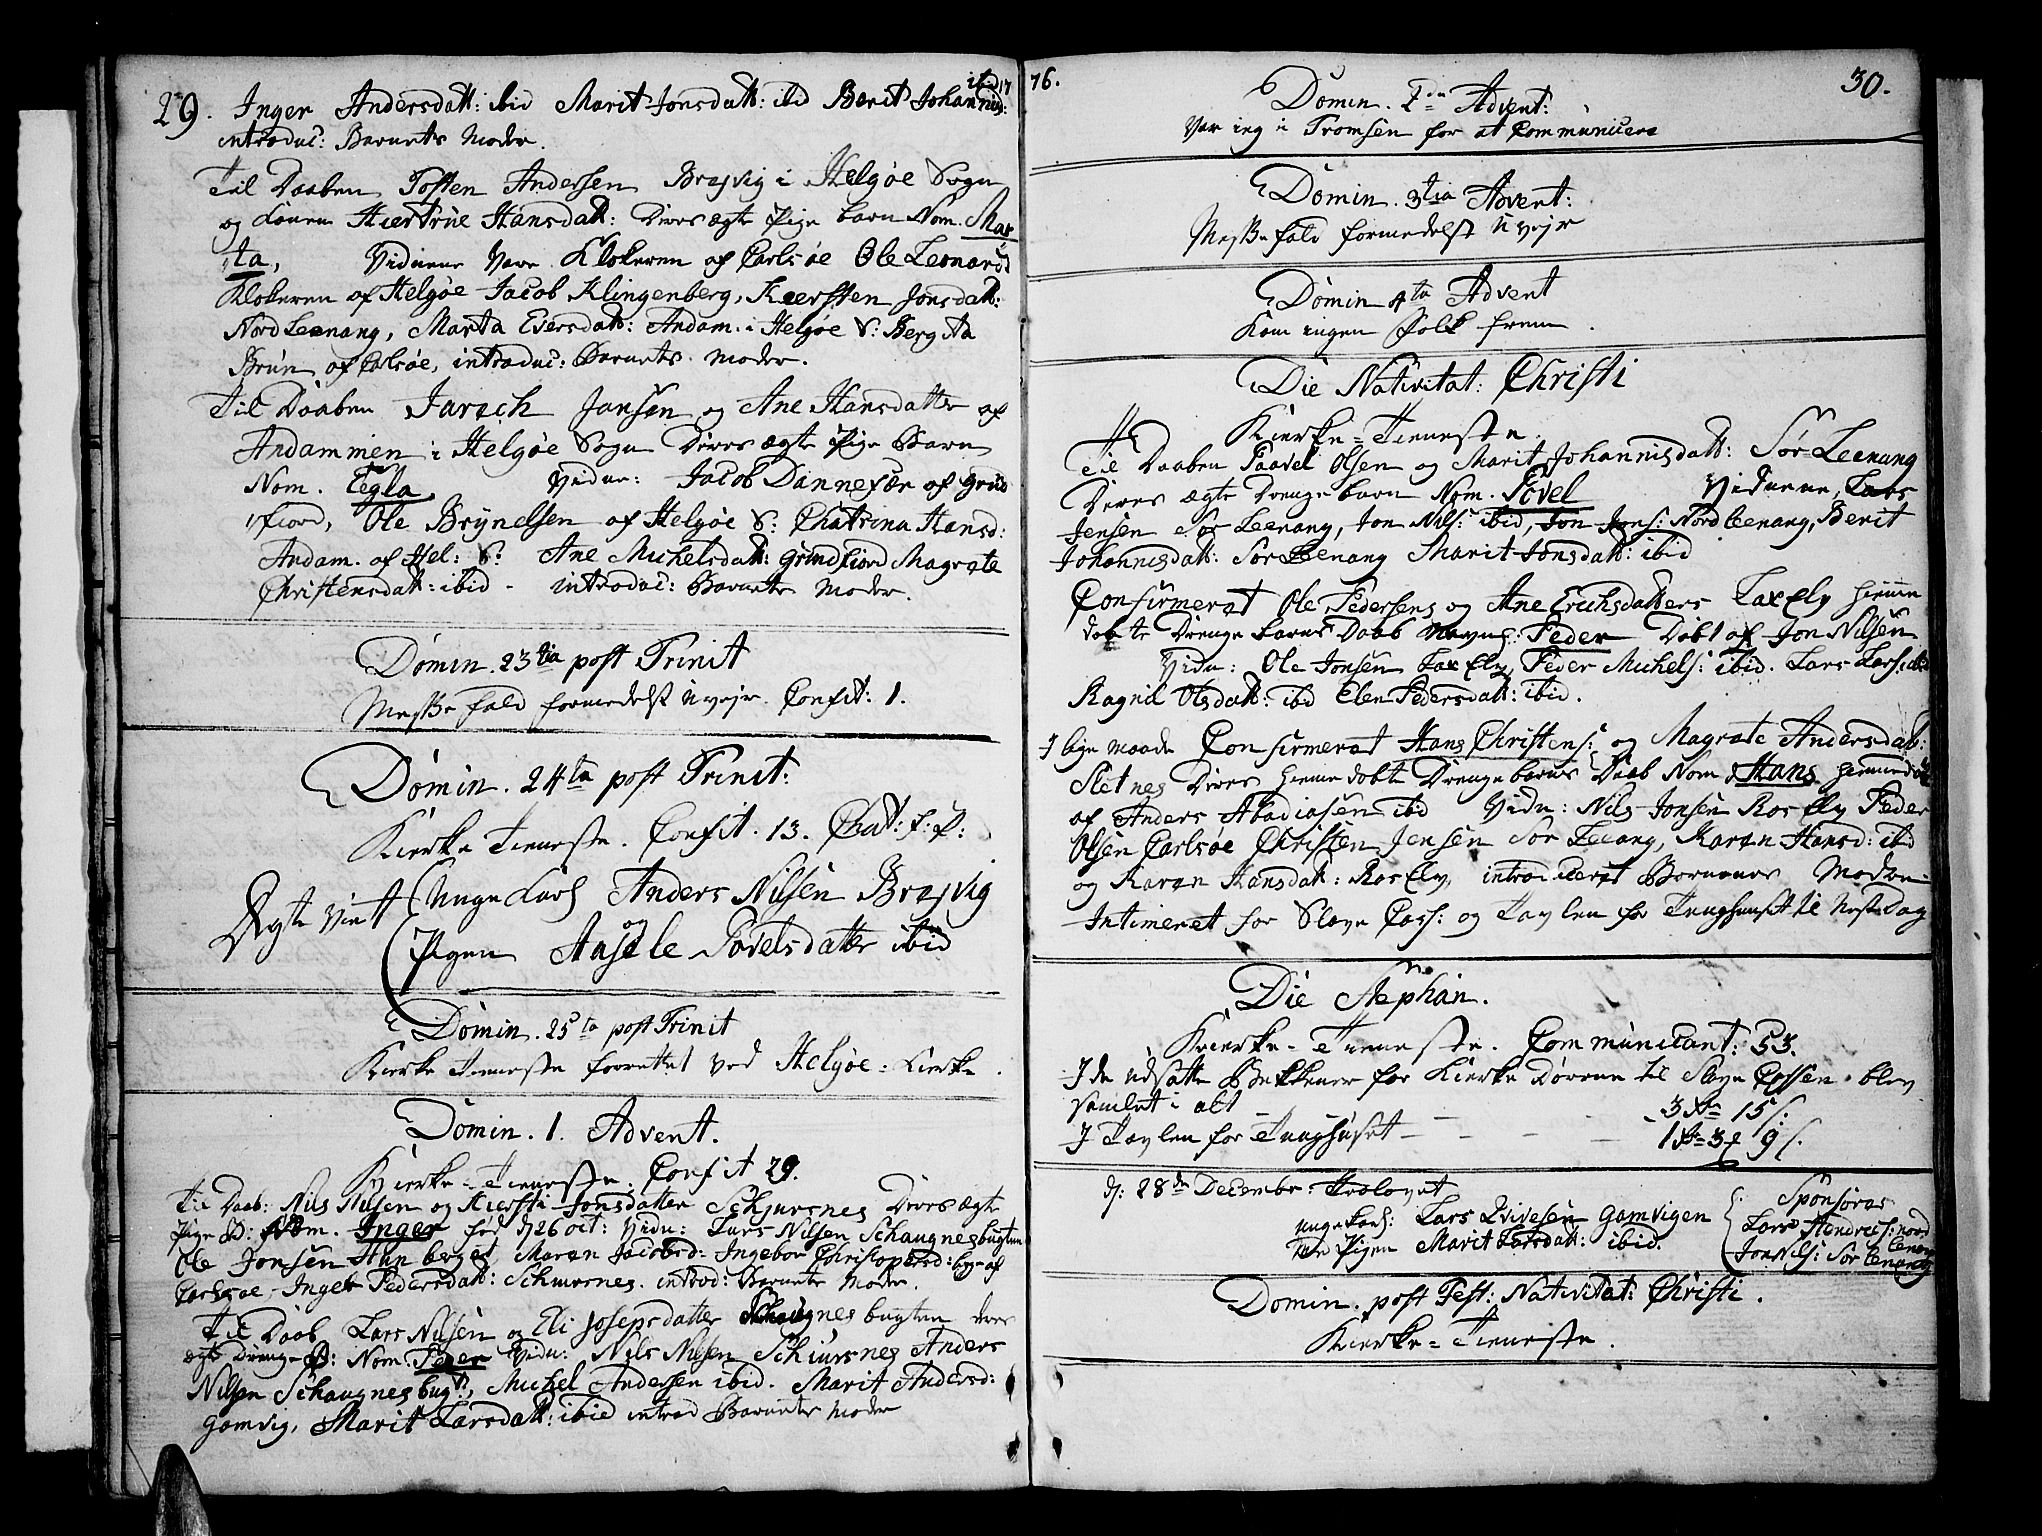 29. Inger Andersdatt: ibid Marit Jonsdatt: ibd Berit Johannis: ibid 17
introduc: Barnets Moder.
Til Daaben Tosten Andersen Brejvig i Helgøe Sogn
og Konen Hiertrue Hansdatt: Deres ægte Pige barn Nom. Mar
ta, Viduene vare Klokeren af Carlsøe Ole Leonards
Klokeren af Helgøe Jacob Klingenberg, Kiersten Jonsdatt:
Nord Leenang, Marta Eversdatt: Andam. i Helgøe S: Bergita
Brun af Carlsøe, introduc: Barnets Moder.
Til Daaben Jarøch Jansen og Ane Hansdatter af
Andammen i Helgøe Sogn Deres ægte Pige Barn
Nom. Tegla, Vidne: Jacob Dannefær af Grün
fiord, Ole Brynelsen af Helgøe S: Chatrina Hansd:
Andam. af Hel: S: Ane Michelsdatt: Grundfiord Magrete
Christensdatt: ibid - introduc: Barnets Moder.
Domin. 23tia post Trinit
Messefald formedelst Uvejr. Confit: 1.
Domin. 24ta post Trinit:
Kierke Tieneste. Confit. 13. Cat: f: p:
Ægte Viett Unge Karl Anders Nilsen Brejvig
og
Pigen Aasele Povelsdatter ibid
Domin. 25ta post Trinit
Kierke Tieneste forrettet ved Helgøe Kierke.
Domin. 1. Advent.
Kierke-Tieneste. Confit 29.
Til Daab: Nils Nilsen og Kiersti Jonsdatter Schjursnes Deres ægte
Pige B: Nom. Inger fød d 26 oct: Vidn: Lars Nilsen Schaugnesbugten
Ole Jonsen Hanberget, Maren Jacobsd: Ingebor Christopersd: begge af
Carlsøe Inger Pedersdatt: Schiursnes. introd: Barnets Moder.
Til Daab Lars Nilsen og Eli Josepsdatter Schaugnesbugten deres
ægte Drenge B: Nom. Peder Vidn: Nils Nilsen Schiursnes Anders
Nilsen Schaugnesbugt:, Michel Andersen ibid. Marit Andersd:
Gamvig, Marit Larsdatt: ibid introd Barnets Moder
76. 30.
Domin. 2da Advent:
Var jeg i Tromsen for at Communicere
Domin. 3tia Advent:
Messefald formedelst Uvejr
Domin 4ta Advent
Kom ingen Folk frem.
Die Nativitat: Christi
Kierke-Tieneste.
Til Daaben Paavel Olsen og Marit Johannisdatt: Sør Leenang
Deres ægte Drengebarn Nom. Povel Viduene, Lars
Jensen Sør Leenang, Jon Nils: ibid, Jon Jons: Nord leenang, Berit
Johannisdatt: Sør Leenang Marit Jonsdatt: ibid
Confirmeret Ole Pedersens og Ane Erichsdatters Lax Elv hieme
dabte Drenge barns Daab Navnl: Peder Døbt af Jon Nilsen
Vidn: Ole Jonsen Lax Elv, Peder Michels: ibid. Lars Lars: ibid
Ragnil Olsdatt: ibid Elen Pedersdatt: ibid.
I lige maade Confirmeret Hans Christens: og Magrete Andersdat:
Sletnes Deres hieme dobte Drengebarns Daab Nom Hans hiemedøbt
af Anders Abadiasen ibid Vidn: Nils Jonsen Ros Elv Peder
Olsen Carlsøe Christen Jensen Sør Leenang, Karen Hansd: ibid
og Karen Hansdatt: Ros Elv, introduceret Bornenes Modre
Intimeret for Slave Cass: og Tavlen for Tugthuset til Nestedag
Die Stephan.
Kierke-Tieneste. Communicant: 53.
I de udsatte Bekkener for Kierke Dørene til Slave Cassen blev
samlet i alt - 3 Mk 15 s:
I Tavlen for Tugthuset - - - - 1 Mk 3 9 s.
d: 28de Decembr: Trolovet
unge Karl: Lars Qvivesen Gamvigen
Pigen Marit Larsdatt: ibid.
Sponsores
Lars Hendrics: nord
lenang
Jon Nils: Sør lenang
Domin. post Fest: Nativitat: Christi.
Kierke-Tieneste.